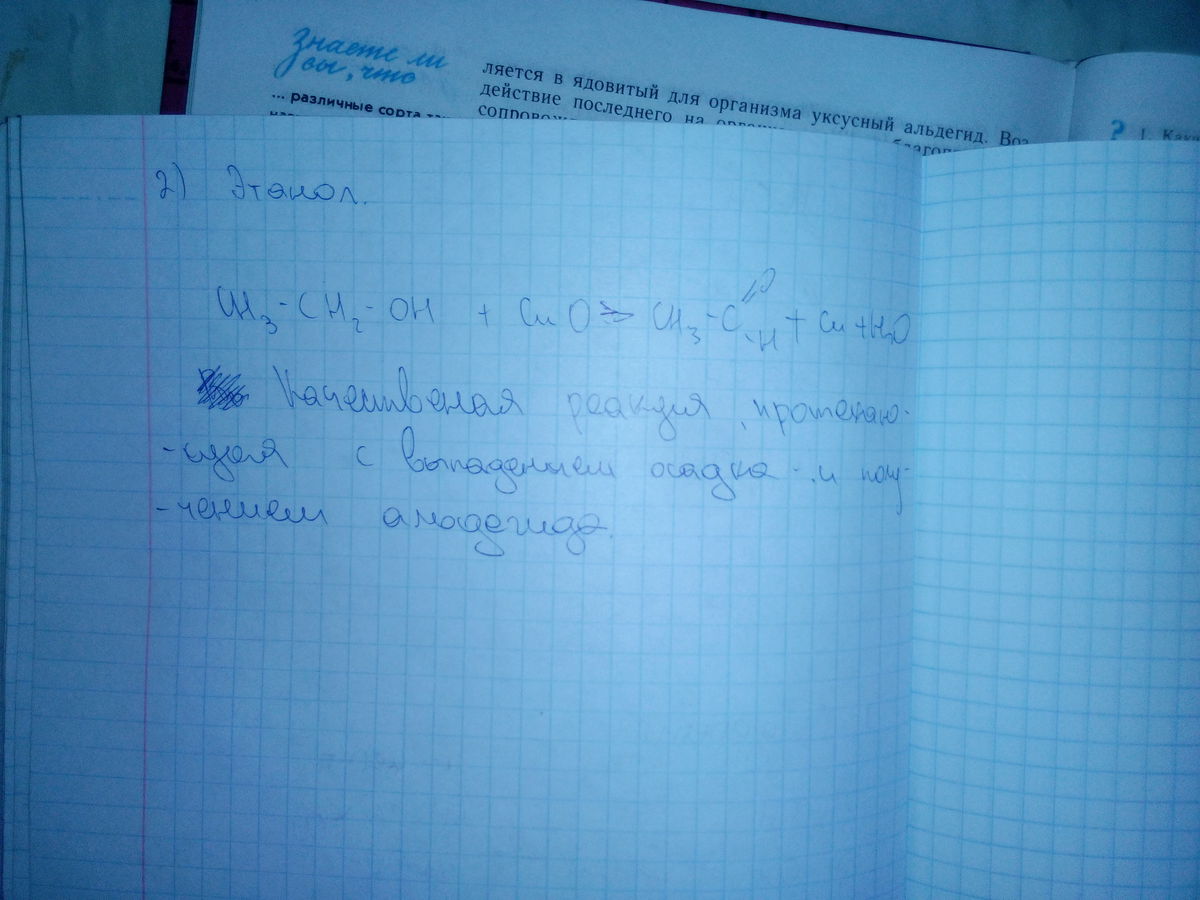 Знаете ли
вы, что
... различные сорта
ляется в ядовитый для организма уксусный альдегид. Воз-
действие последнего на
? 1. Каки
2) Этанол.
CH₃-CH₂-OH + CuO => CH₃-C=O-H + Cu + H₂O
Качественая реакция, протекаю-
-щая с выпадением осадка и полу-
-чением альдегида.